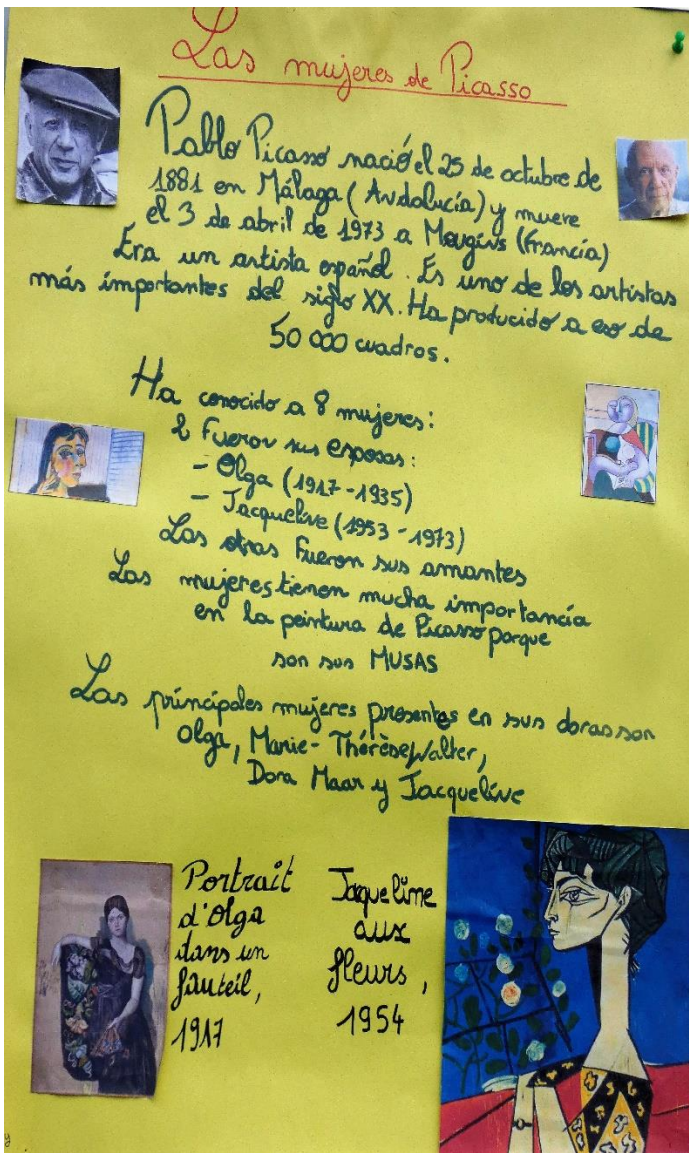 Las mujeres de Picasso
Pablo Picasso nació el 25 de octubre de
1881 en Málaga (Andalucía) y muere
el 3 de abril de 1973 a Mougins (Francia)
Era un artista español. Es uno de los artistas
más importantes del siglo XX. Ha producido a eso de
50 000 cuadros.
Ha conocido a 8 mujeres:
2 Fueron sus esposas:
- Olga (1917-1935)
- Jacqueline (1953-1973)
Las otras Fueron sus amantes
Las mujeres tienen mucha importancia
en la peintura de Picasso porque
son sus MUSAS
Las principales mujeres presentes en sus obras son
Olga, Marie-Thérèse Walter,
Dora Maar y Jacqueline
Portrait
d'Olga
dans un
fauteil,
1917
Jaqueline
aux
fleurs,
1954